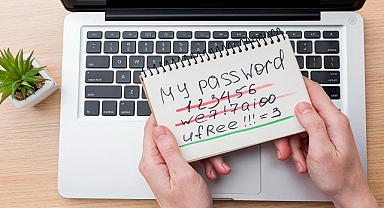 MY PASSWORD
123456
we7!7a!00
ufRee!!!=3